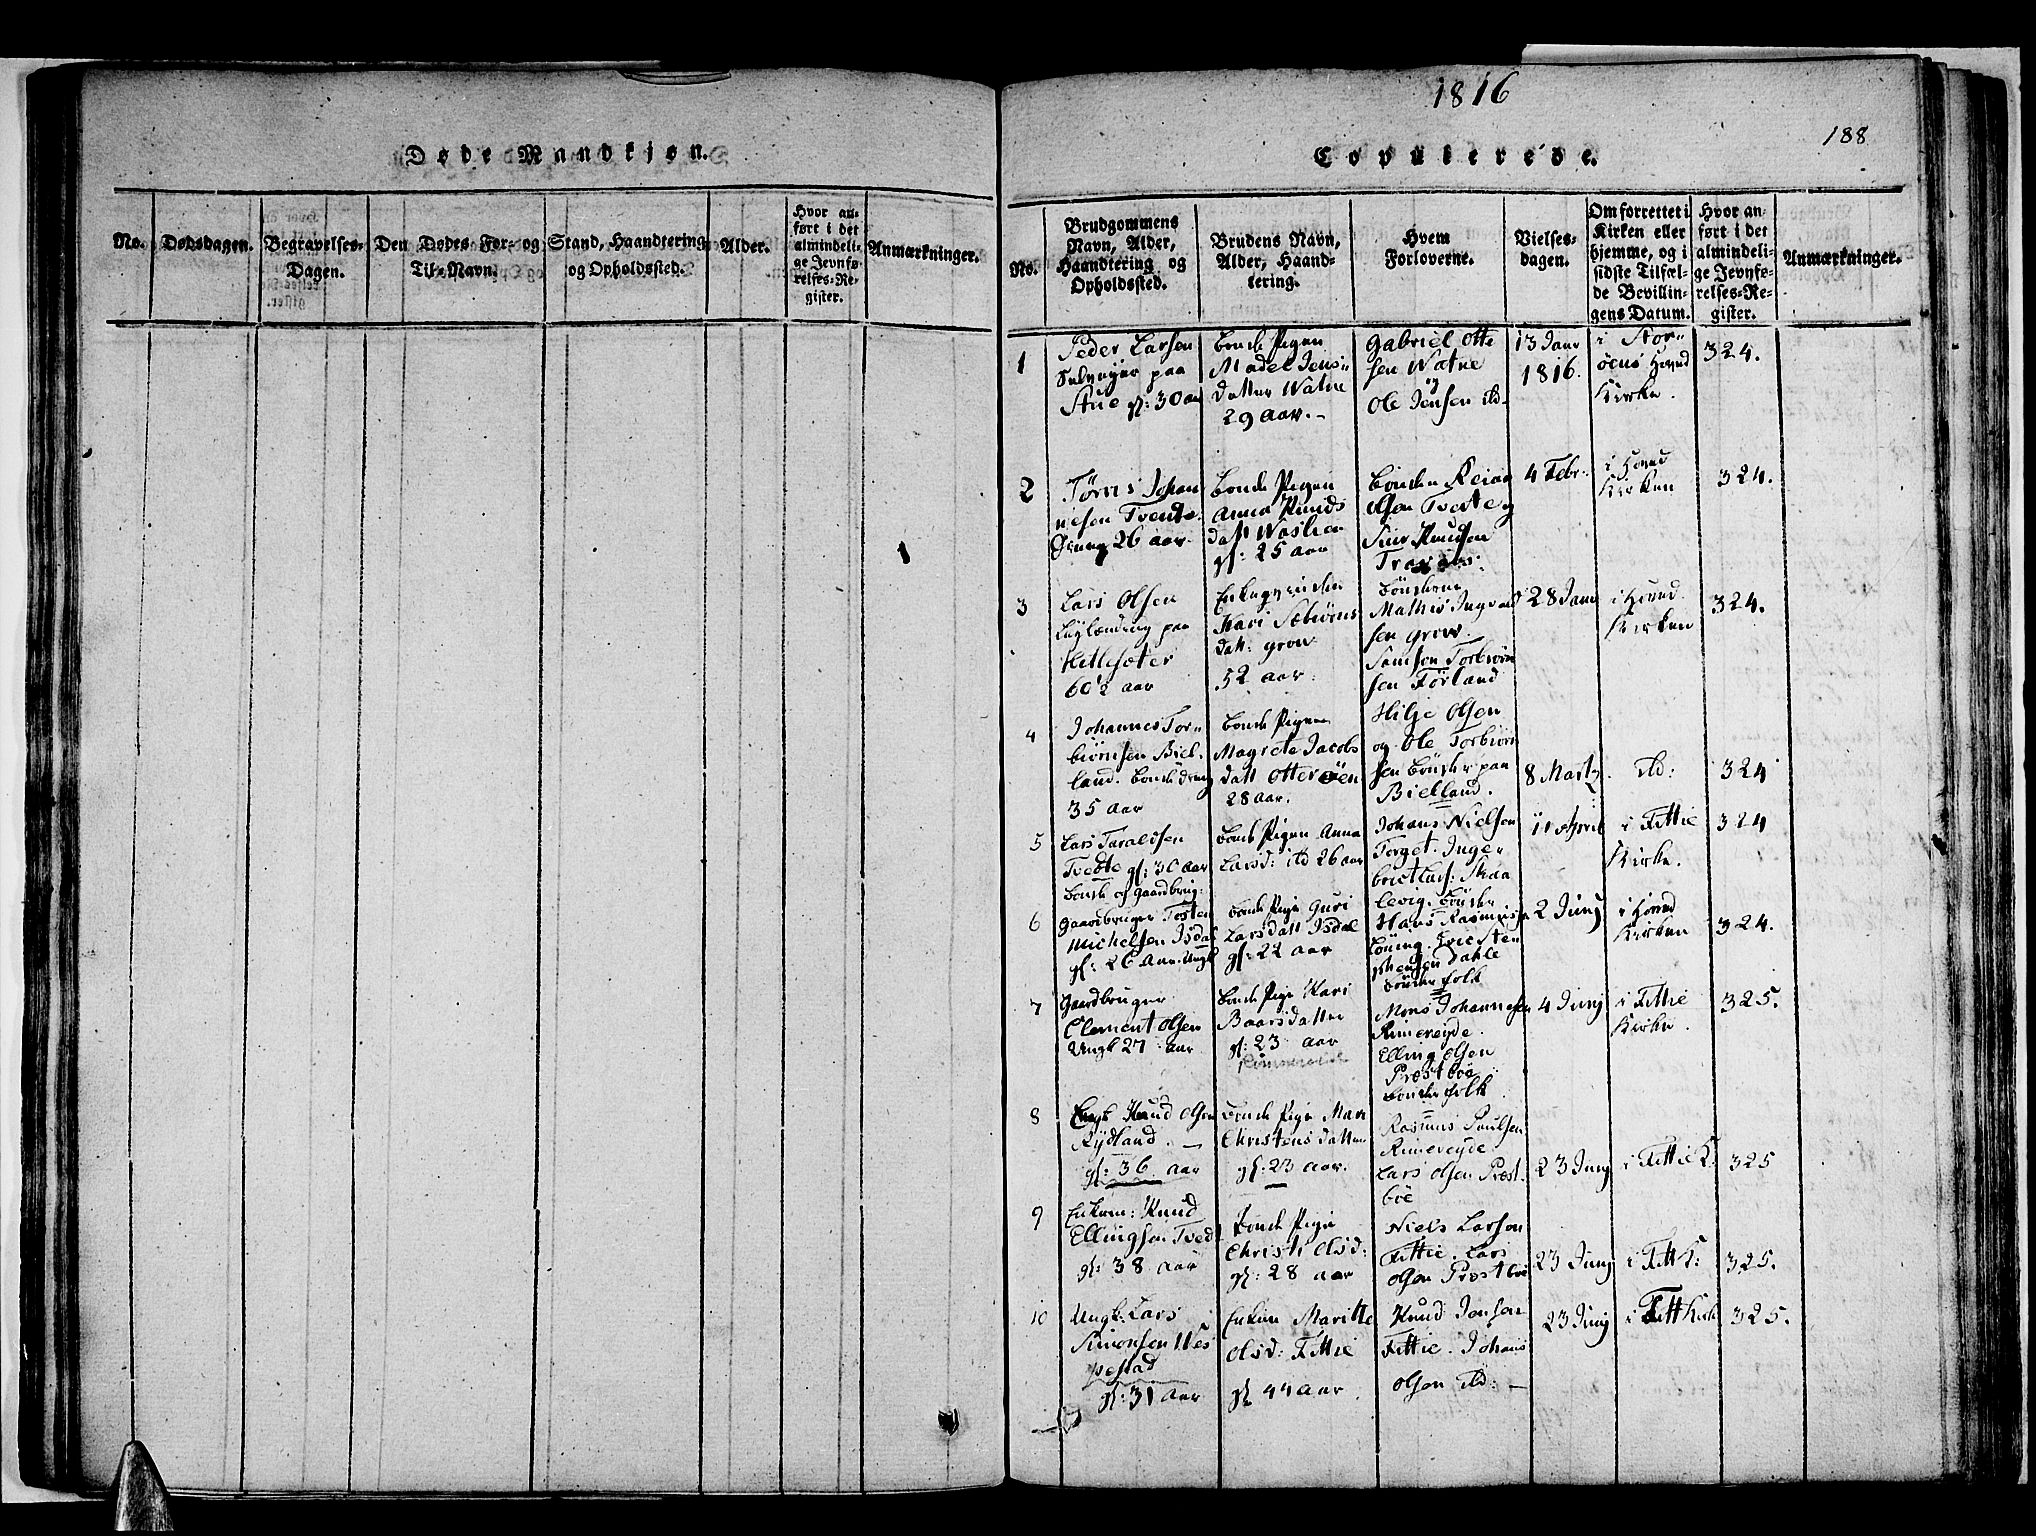 Døde Mandkjøn.
No.
Dødsdagen.
Begravelses-
Dagen.
Den Dødes For- og
Til-Navn.
Stand, Haandtering
og Opholdssted.
Alder.
Hvor an-
ført i det
almindeli-
ge Jevnfø-
relses-Re-
gister.
Anmærkninger.
1816
188
Copulerede.
No.
Brudgommens
Navn, Alder,
Haandtering og
Opholdssted.
Brudens Navn,
Alder, Haand-
tering.
Hvem
Forloverne.
Vielses-
dagen.
Om forrettet i
Kirken eller
hjemme, og i
sidste Tilfæl-
de Bevillin-
gens Datum.
Hvor an-
ført i det
almindeli-
ge Jevnfø-
relses-Re-
gister.
Anmærkninger.
1
Peder Larsen
Selveyer paa
Stue gl: 30 aar
Bonde Pigen
Madel Jens-
datter Watne
29 aar.
Gabriel Otte
sen Watne
og
Ole Jensen ibd-
13 Janr
1816.
i Stor-
öens Hoved
Kirke.
324.
2
Tørris Johan
nesen Tvedte
26 aar.
Bonde Pigen
Anna Knuds
datt
gl: 25 aar
Bönder
Olsen Tvedte og
Siur Knudsen
4 Febr:
i Hoved
Kirken
324.
3
Lars Olsen
paa
Hetlesæter
60½ aar
Kari Sebiörns
datt: Grow
52 aar.
Bönderne
Mathis Ingvald
sen Grow.
Samsen Torbiörn
sen Förland
28 Janr
i Hoved
Kirken
324.
4
Johannes Tor-
biörnsen Biel-
land. Bonde dreng
35 aar
Bonde Pigen
Magrete Jacobs
datt Otteröen
28 aar.
Hilje Olsen
og Ole Torbiörn
sen Bönder paa
Bielland.
8 Martz
ibd:
324
5
Lars Taraldsen
Tvedte gl: 30 aar
Bonde og Gaardbrug:
Bonde Pigen Anna
Larsd: ibd 26 aar
Johans Nielsen
Torget. Inge-
brict Lars: Skaa
levig. Bönder
11 April
i Fittie
Kirke.
324
6
Gaardbruger Tosten
Michelsen Isdal
gl: 26 Aar. Ungk
Bonde Pige Guri
Larsdatt Isdal
gl: 22 aar
Hans Rasmus:
Eric Ste
phensen Dahle
Bönderfolk
2 Junj
i Hoved
Kirken
324.
7
Gaardbruger
Clement Olsen
Ungk 27 aar
Bonde Pige Kari
Baarsdatter
gl: 23 aar
Rimmereide
Mons Johannesen
Rimereyde.
Elling Olsen
Præstböe
Bönderfolk
4 Junj
i Fittie
Kirke.
325.
8
Ungk Knud Olsen
Rydland.
gl: 36 aar
Bonde Pige Mari
Christens datter
gl: 23 aar.
Rasmus Paulsen
Rimereyde.
Lars Olsen Præst-
böe
23 Junj
i Fittie K:
325
9
Enkem: Knud
Ellingsen Tvedt
gl: 38 aar
Bonde Pige
Christi Olsd:
gl: 28 aar
Niels Larson
Fittie. Lars
Olsen Præstböe
23 Junj
i Fitt K:
325.
10
Ungk: Lars
Simonsen Wes
pestad
gl: 31 aar
Enken Maritte
Olsd: Fittie
gl 44 aar.
Knud Jensen
Fittie. Johans
Olsen ibd:
23 Junj
i Fitt Kirk
325.